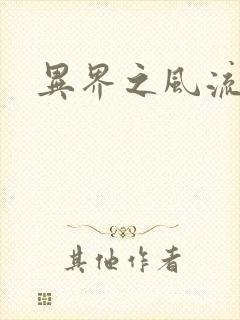 異界之風流
其他作者